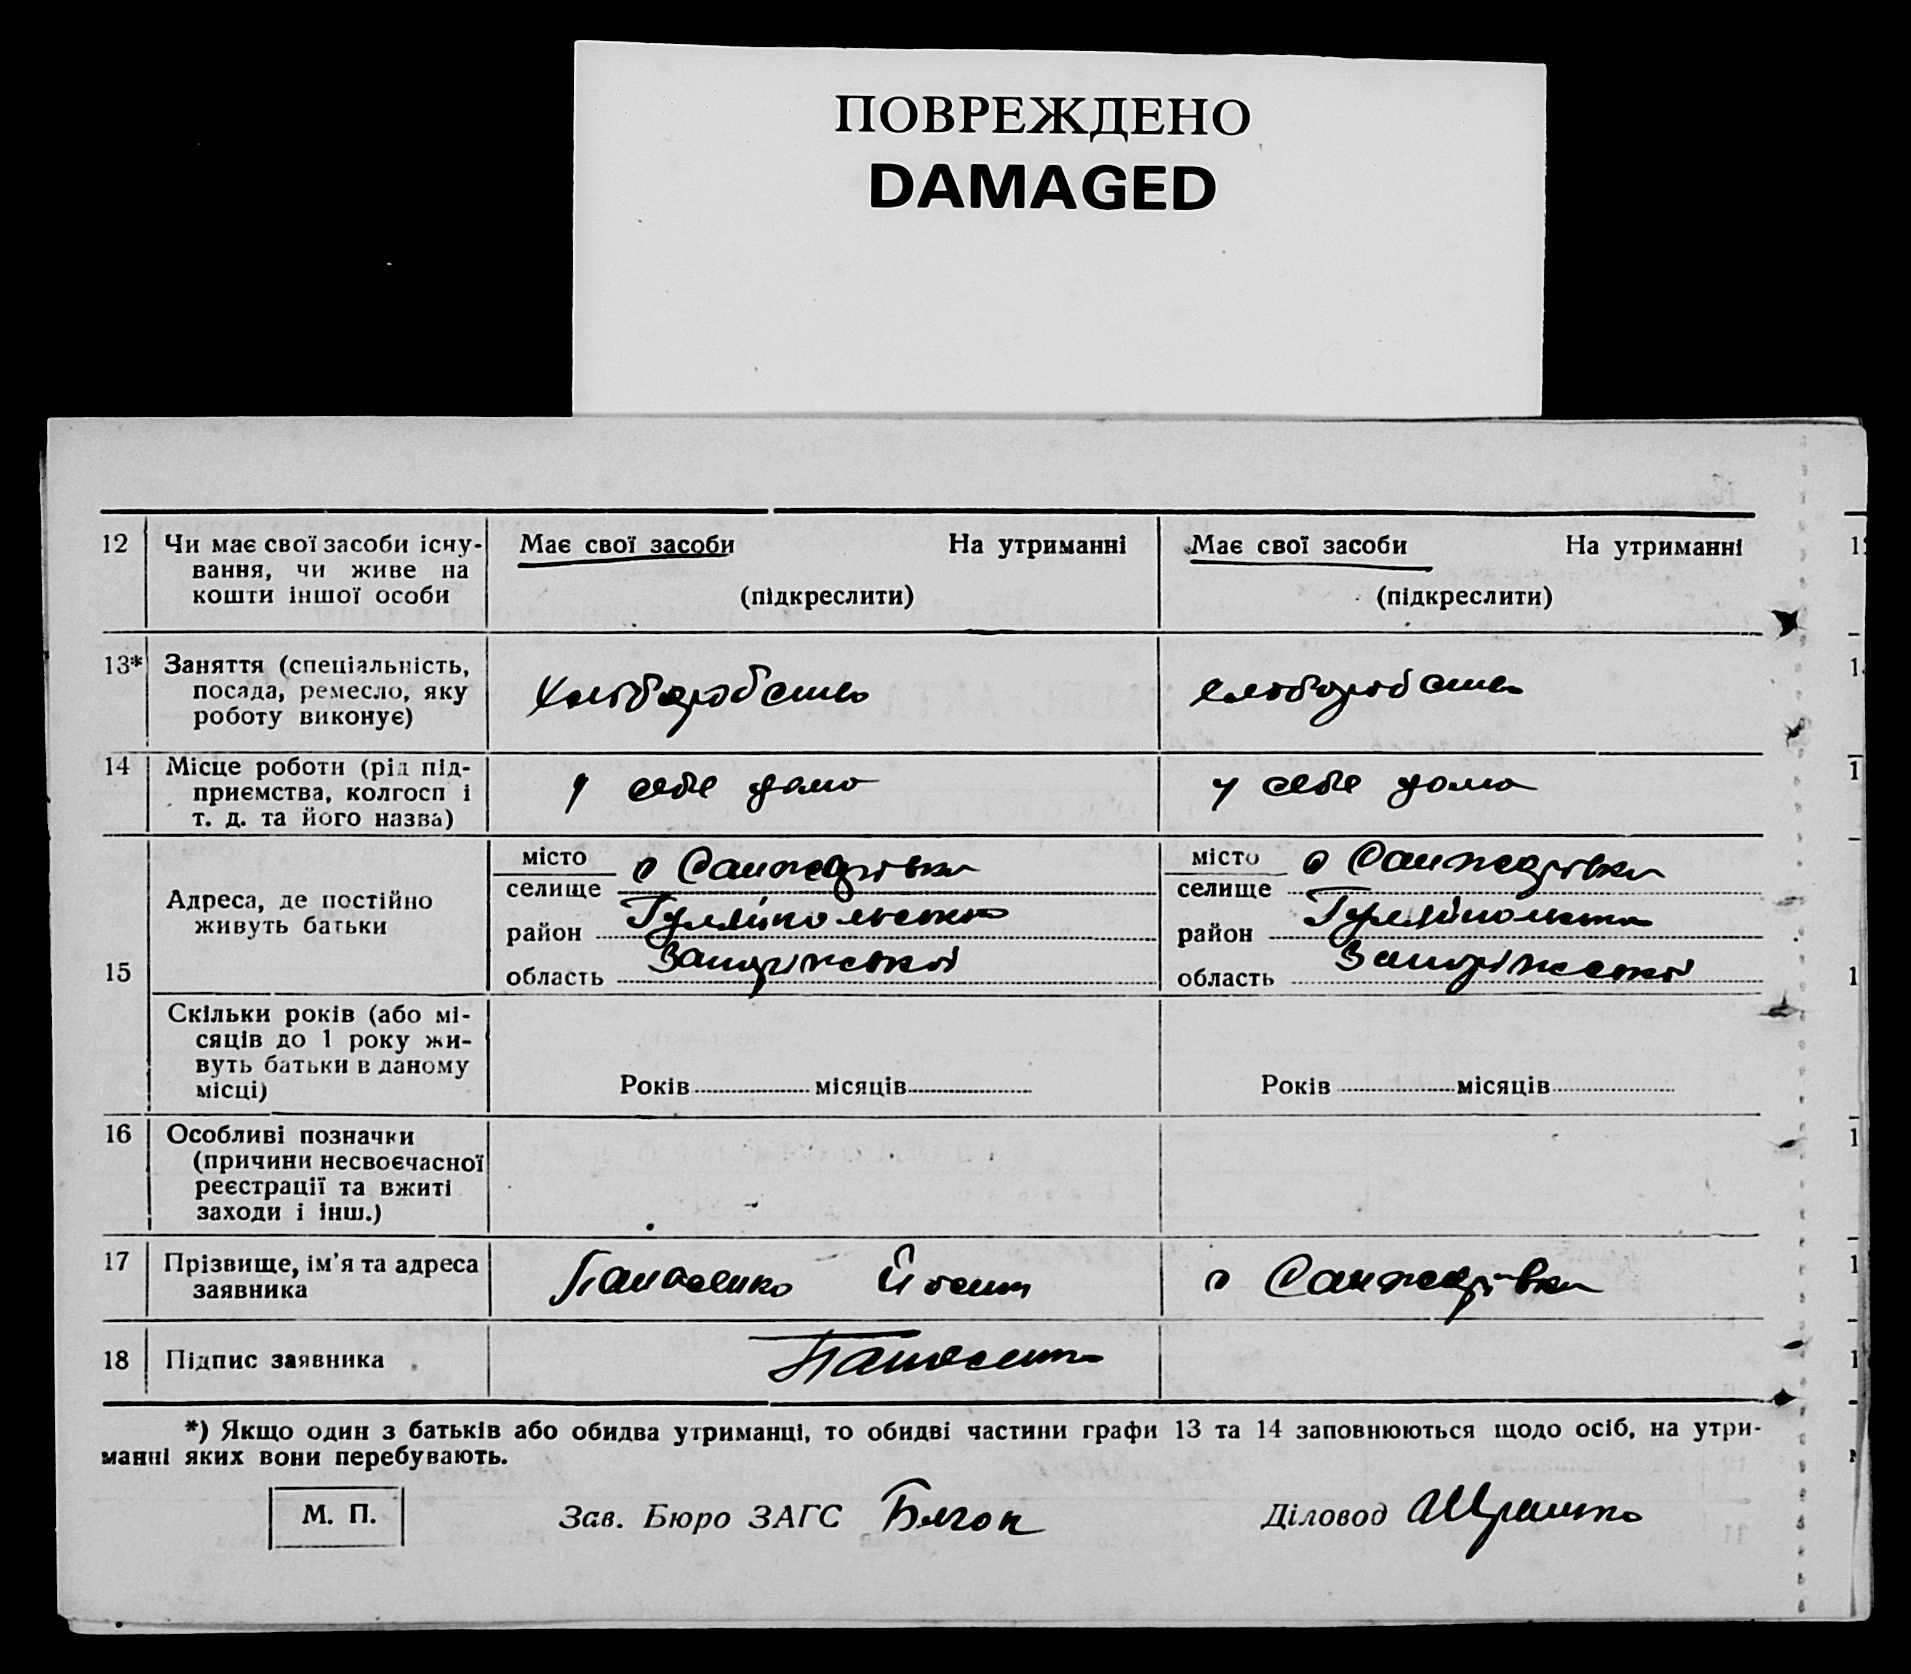 ПОВРЕЖДЕНО
DAMAGED
12 Чи має свої засоби існу-
вання, чи живе на
кошти іншої особи
Має свої засоби На утриманні
(підкреслити)
Має свої засоби На утриманні
(підкреслити)
13* Заняття (спеціальність,
посада, ремесло, яку
роботу виконує)
14 Місце роботи (рід під-
приємства, колгосп і
т. д. та його назва)
у себе дома
у себе дома
15 Адреса, де постійно
живуть батьки
місто
селище с Санжарівка
район Гуляйпольського
область Запорізької
місто
селище с Санжарівка
район Гуляйпольського
область Запорізької
Скільки років (або мі-
сяців до 1 року жи-
вуть батьки в даному
місці)
Років місяців
Років місяців
16 Особливі позначки
(причини несвоєчасної
реєстрації та вжиті
заходи і інш.)
17 Прізвище, ім'я та адреса
заявника
Панасенко Йосип с Санжарівка
18 Підпис заявника
*) Якщо один з батьків або обидва утриманці, то обидві частини графи 13 та 14 заповнюються щодо осіб, на утри-
манні яких вони перебувають.
М. П. Зав. Бюро ЗАГС Діловод